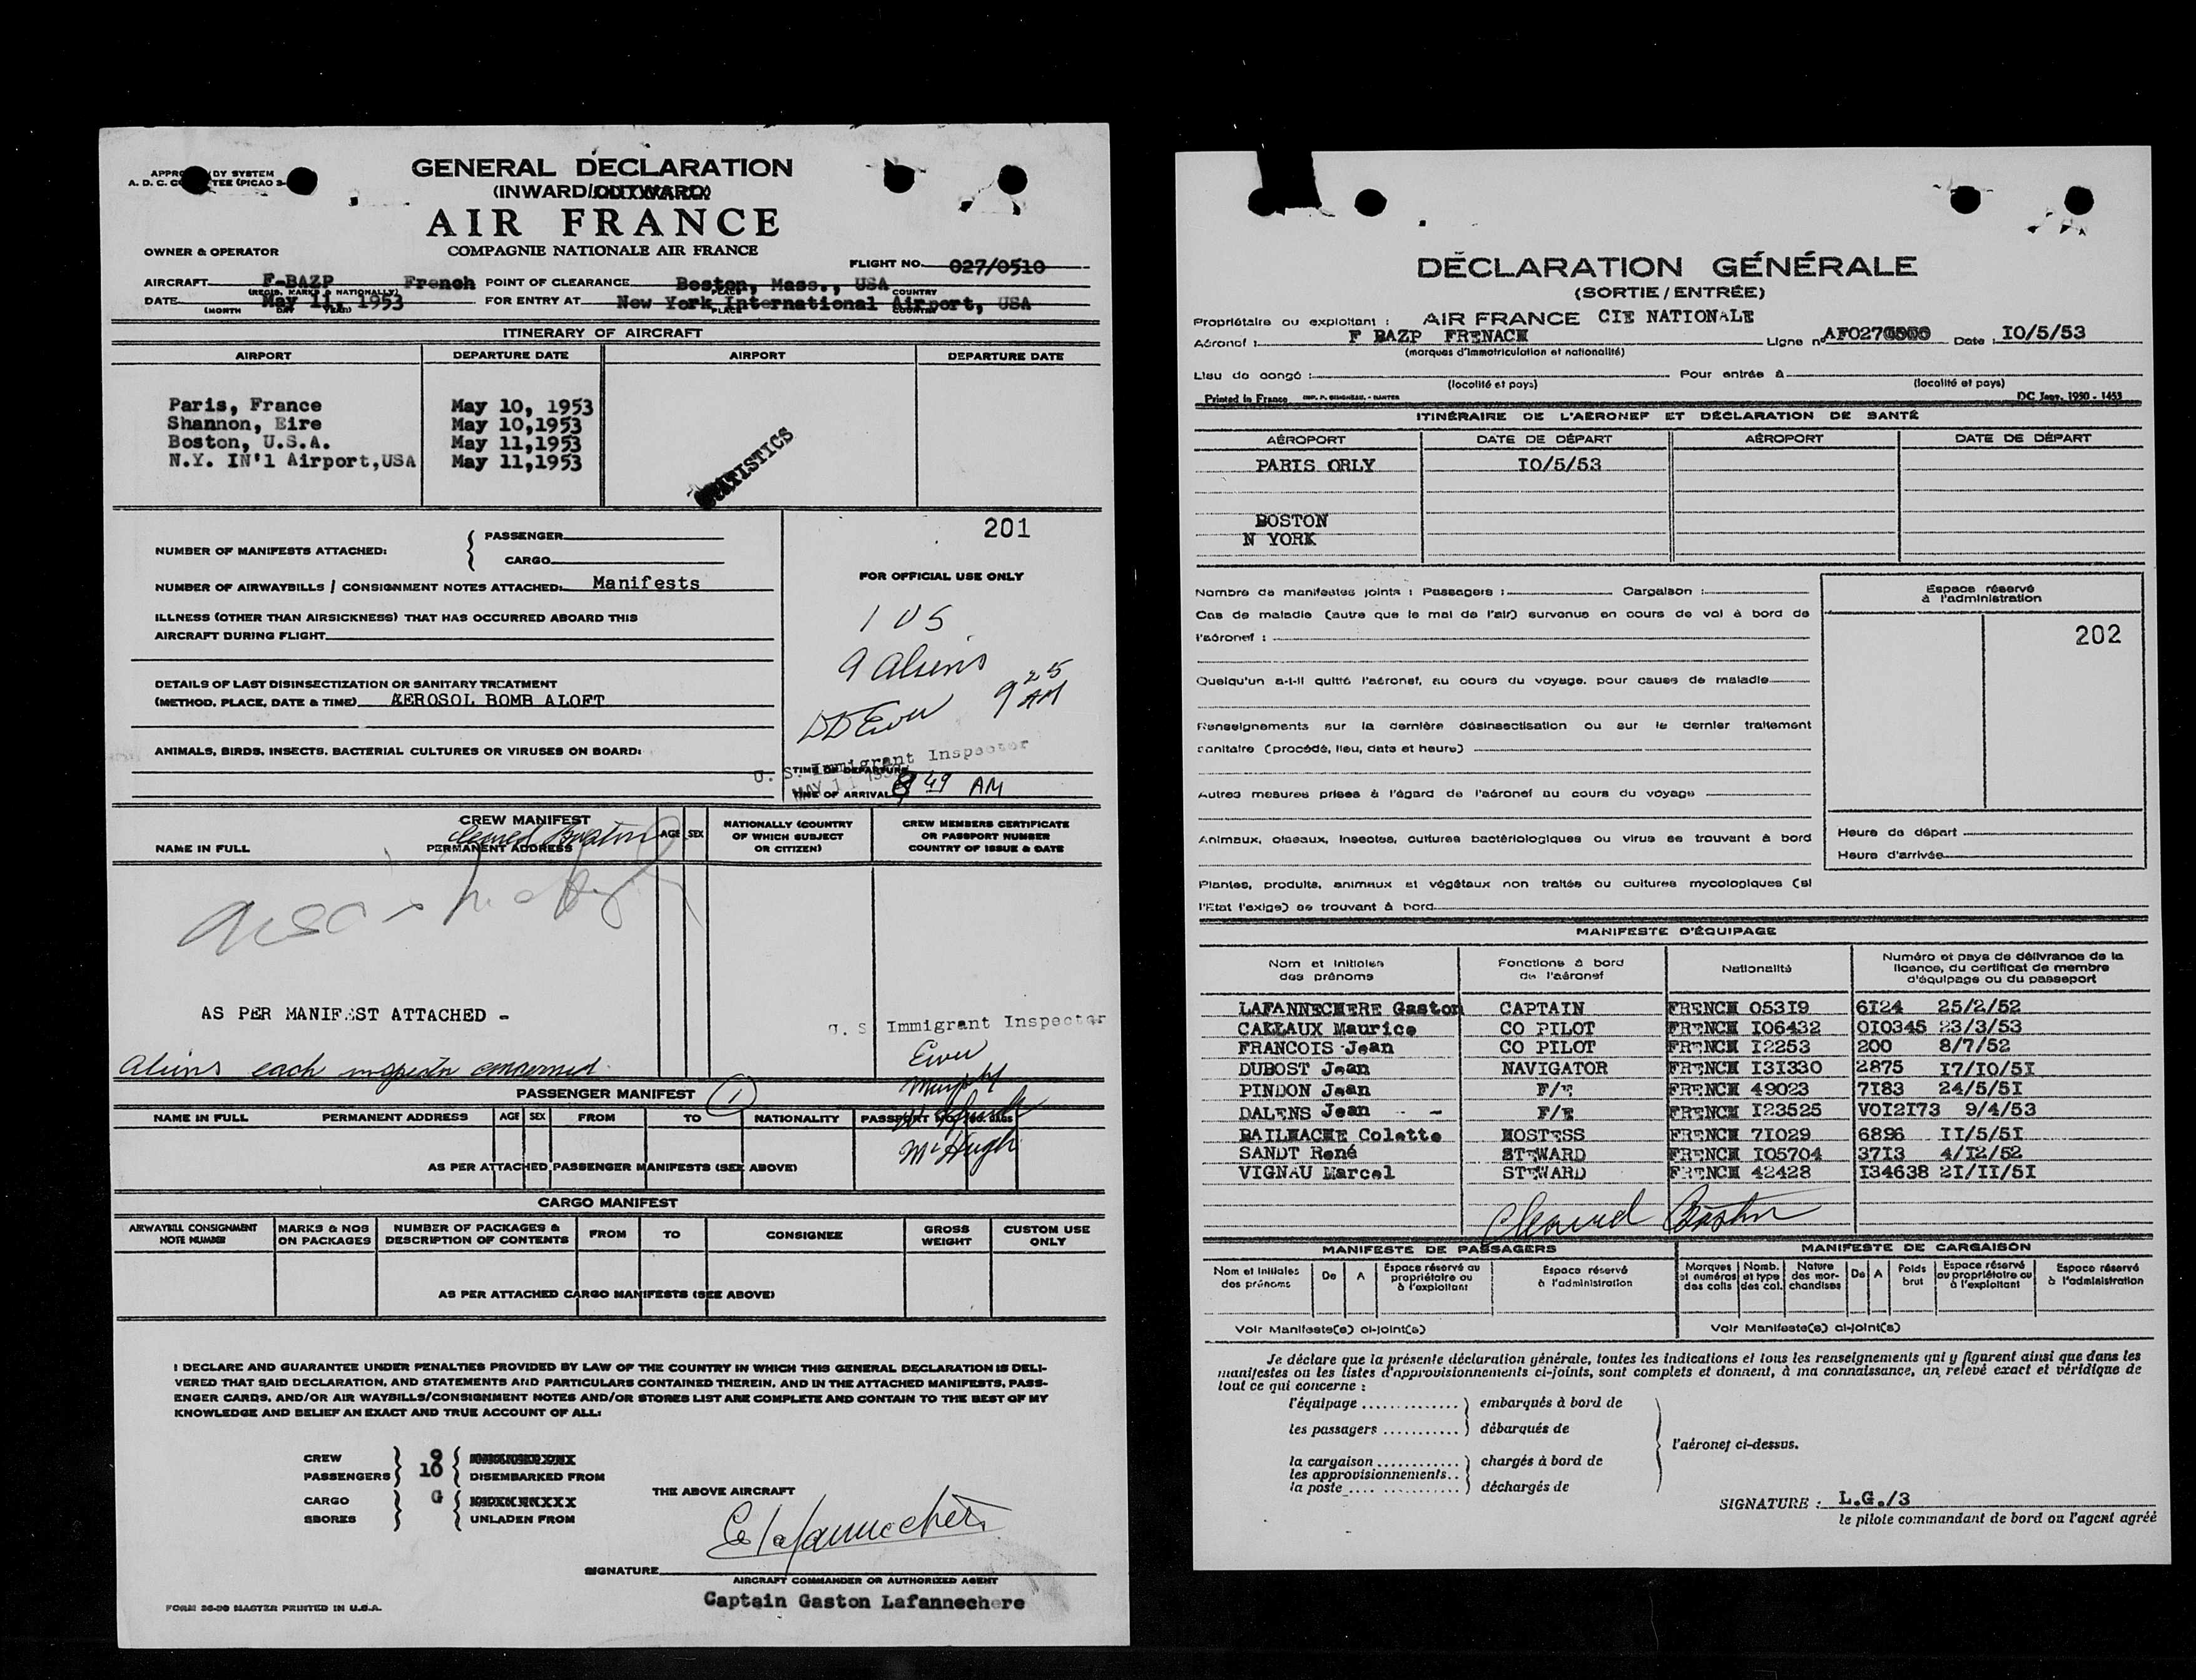 GENERAL DECLARATION
(INWARD/OUTWARD)
AIR FRANCE
COMPAGNIE NATIONALE AIR FRANCE
OWNER & OPERATOR
FLIGHT NO. 027/0510
AIRCRAFT F-BAZP French POINT OF CLEARANCE Boston, Mass., USA
(REGIS. MARKS & NATIONALLY) PLACE COUNTRY
DATE May 11, 1953 FOR ENTRY AT New York International Airport, USA
(MONTH DAY YEAR) PLACE COUNTRY
ITINERARY OF AIRCRAFT
AIRPORT DEPARTURE DATE AIRPORT DEPARTURE DATE
Paris, France May 10, 1953
Shannon, Eire May 10,1953
Boston, U.S.A. May 11,1953
N.Y. IN'l Airport,USA May 11,1953
201
NUMBER OF MANIFESTS ATTACHED: PASSENGER
CARGO
NUMBER OF AIRWAYBILLS / CONSIGNMENT NOTES ATTACHED: Manifests
FOR OFFICIAL USE ONLY
1 US
9 aliens
9 25 AM
ILLNESS (OTHER THAN AIRSICKNESS) THAT HAS OCCURRED ABOARD THIS
AIRCRAFT DURING FLIGHT
DETAILS OF LAST DISINSECTIZATION OR SANITARY TREATMENT
(METHOD, PLACE, DATE & TIME) AEROSOL BOMB ALOFT
ANIMALS, BIRDS, INSECTS, BACTERIAL CULTURES OR VIRUSES ON BOARD:
U. S. Immigrant Inspector
TIME OF DEPARTURE
TIME OF ARRIVAL 8 49 AM
CREW MANIFEST
NAME IN FULL PERMANENT ADDRESS AGE SEX NATIONALLY (COUNTRY OF WHICH SUBJECT OR CITIZEN) CREW MEMBERS CERTIFICATE OR PASSPORT NUMBER COUNTRY OF ISSUE & DATE
Cleared Boston
AS PER MANIFEST ATTACHED -
U. S. Immigrant Inspector
Ewer
Murphy
McHugh
Aliens each inspector concerned.
PASSENGER MANIFEST 1
NAME IN FULL PERMANENT ADDRESS AGE SEX FROM TO NATIONALITY PASSPORT NO.
AS PER ATTACHED PASSENGER MANIFESTS (SEE ABOVE)
CARGO MANIFEST
AIRWAYBILL CONSIGNMENT NOTE NUMBER MARKS & NOS ON PACKAGES NUMBER OF PACKAGES & DESCRIPTION OF CONTENTS FROM TO CONSIGNEE GROSS WEIGHT CUSTOM USE ONLY
AS PER ATTACHED CARGO MANIFESTS (SEE ABOVE)
I DECLARE AND GUARANTEE UNDER PENALTIES PROVIDED BY LAW OF THE COUNTRY IN WHICH THIS GENERAL DECLARATION IS DELI-
VERED THAT SAID DECLARATION, AND STATEMENTS AND PARTICULARS CONTAINED THEREIN, AND IN THE ATTACHED MANIFESTS, PASS-
ENGER CARDS, AND/OR AIR WAYBILLS/CONSIGNMENT NOTES AND/OR STORES LIST ARE COMPLETE AND CONTAIN TO THE BEST OF MY
KNOWLEDGE AND BELIEF AN EXACT AND TRUE ACCOUNT OF ALL:
CREW 9
PASSENGERS 10 DISEMBARKED FROM
CARGO
SBORES UNLADEN FROM
THE ABOVE AIRCRAFT
G Lafannechère
SIGNATURE
AIRCRAFT COMMANDER OR AUTHORIZED AGENT
Captain Gaston Lafannechere
FORM 26-30 MASTER PRINTED IN U.S.A.
DÉCLARATION GÉNÉRALE
(SORTIE/ENTRÉE)
Propriétaire ou exploitant : AIR FRANCE CIE NATIONALE
Aéronef : F BAZP FRENACH Ligne n° AF027 Date : IO/5/53
(marques d'immatriculation et nationalité)
Lieu de congé : Pour entrée à
(localité et pays) (localité et pays)
Printed in France DC Janv. 1950 - 1453
ITINÉRAIRE DE L'AÉRONEF ET DÉCLARATION DE SANTÉ
AÉROPORT DATE DE DÉPART AÉROPORT DATE DE DÉPART
PARIS ORLY IO/5/53
BOSTON
N YORK
Nombre de manifestes joints : Passagers : Cargaison :
Espace réservé à l'administration
202
Cas de maladie (autre que le mal de l'air) survenus en cours de vol à bord de
l'aéronef :
Quelqu'un a-t-il quitté l'aéronef, au cours du voyage, pour cause de maladie
Renseignements sur la dernière désinsectisation ou sur le dernier traitement
sanitaire (procédé, lieu, date et heure)
Autres mesures prises à l'égard de l'aéronef au cours du voyage
Animaux, oiseaux, insectes, cultures bactériologiques ou virus se trouvant à bord
Heure de départ
Heure d'arrivée
Plantes, produits, animaux et végétaux non traités ou cultures mycologiques (si
l'Etat l'exige) se trouvant à bord
MANIFESTE D'ÉQUIPAGE
Nom et initiales des prénoms Fonctions à bord de l'aéronef Nationalité Numéro et pays de délivrance de la licence, du certificat de membre d'équipage ou du passeport
LAFANNECHERE Gaston CAPTAIN FRENCH 053I9 6I24 25/2/52
CAILLAUX Maurice CO PILOT FRENCH IO6432 OIO345 23/3/53
FRANCOIS Jean CO PILOT FRENCH I2253 200 8/7/52
DUBOST Jean NAVIGATOR FRENCH I3I330 2875 I7/IO/5I
PINDON Jean F/E FRENCH 49023 7I83 24/5/5I
DALENS Jean - - F/E FRENCH I23525 VOI2I73 9/4/53
BAILHACHE Colette HOSTESS FRENCH 7IO29 6896 II/5/5I
SANDT René STEWARD FRENCH IO5704 37I3 4/I2/52
VIGNAU Marcel STEWARD FRENCH 42428 I34638 2I/II/5I
Cleared Boston
MANIFESTE DE PASSAGERS MANIFESTE DE CARGAISON
Nom et initiales des prénoms De A Espace réservé au propriétaire ou à l'exploitant Espace réservé à l'administration Marques et numéros des colis Nomb. et type des col. Nature des mar- chandises De A Poids brut Espace réservé au propriétaire ou à l'exploitant Espace réservé à l'administration
Voir Manifeste(s) ci-joint(s) Voir Manifeste(s) ci-joint(s)
Je déclare que la présente déclaration générale, toutes les indications et tous les renseignements qui y figurent ainsi que dans les
manifestes ou les listes d'approvisionnements ci-joints, sont complets et donnent, à ma connaissance, un relevé exact et véridique de
tout ce qui concerne :
l'équipage .............. embarqués à bord de
les passagers ........... débarqués de
l'aéronef ci-dessus.
la cargaison ............ chargés à bord de
les approvisionnements..
la poste .... ............ déchargés de
SIGNATURE : L.G./3
le pilote commandant de bord ou l'agent agréé